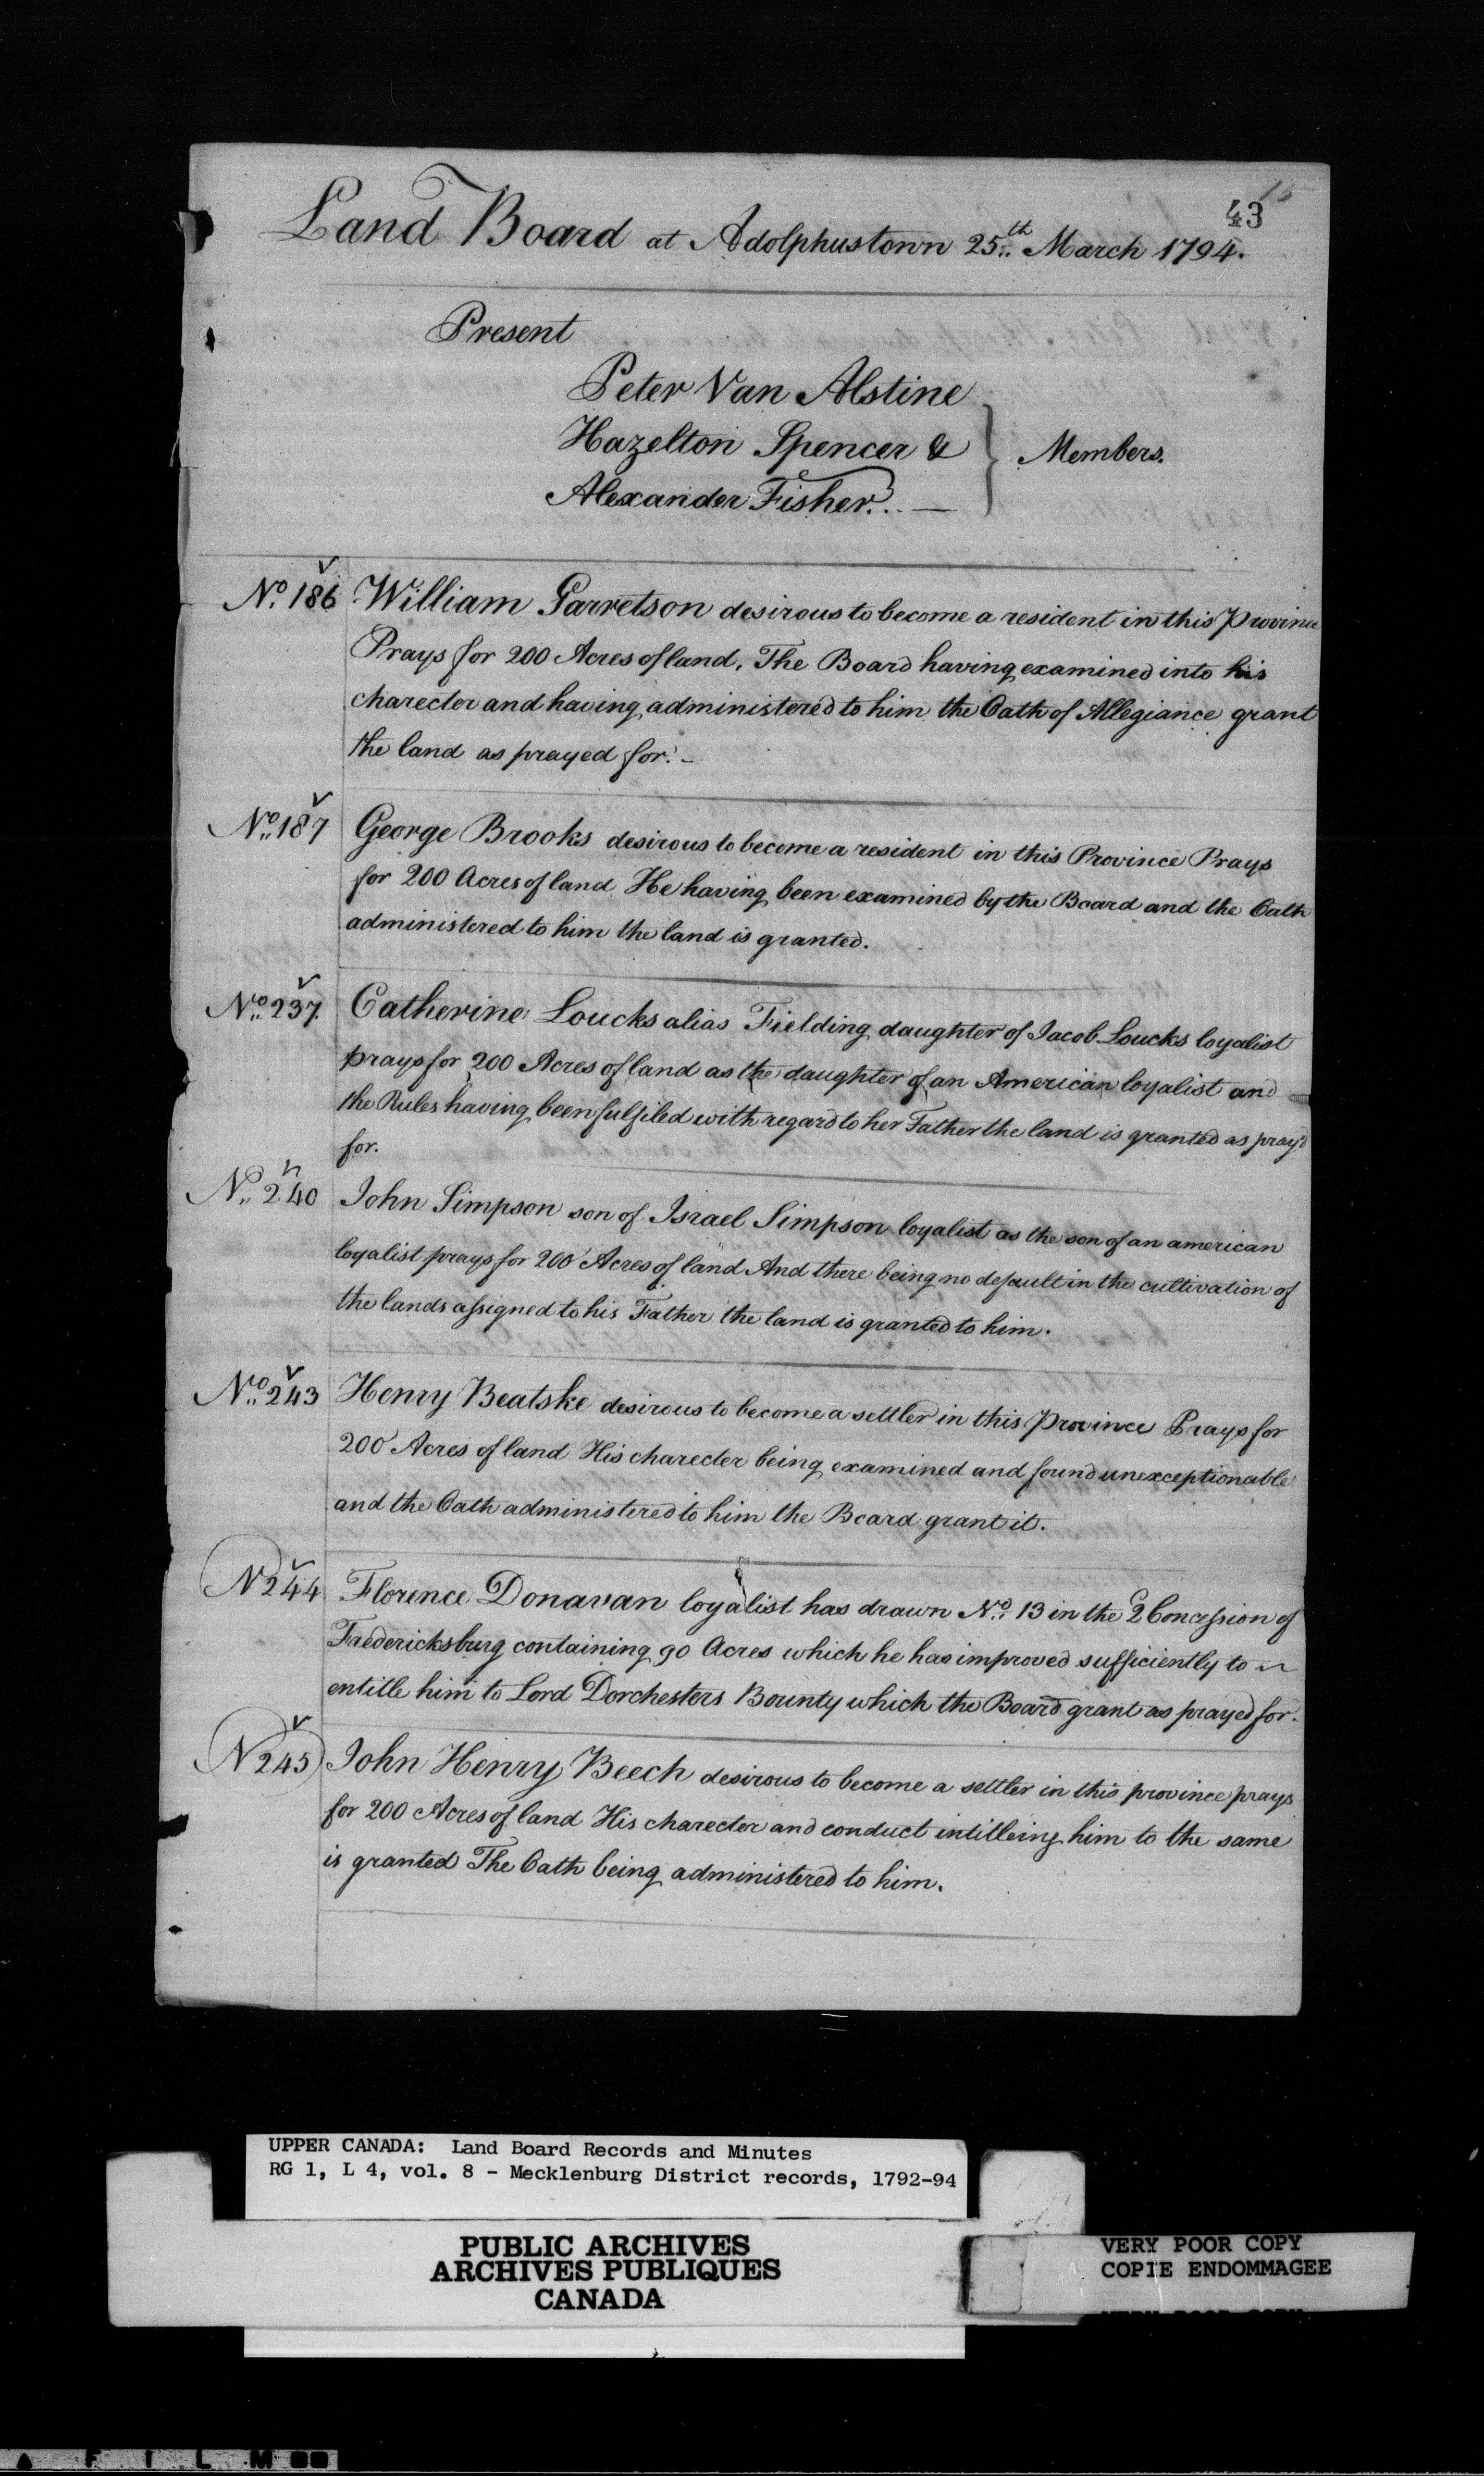 15
43
Land Board at Adolphustown 25th March 1794.
Present
Peter Van Alstine
Hazelton Spencer &
Members.
Alexander Fisher. —
No. 186 William Garretson desirous to become a resident in this Province
Prays for 200 Acres of land, The Board having examined into his
charecter and having administered to him the Oath of Allegiance grant
the land as prayed for. -
No. 187 George Brooks desirous to become a resident in this Province Prays
for 200 Acres of land He having been examined by the Board and the Oath
administered to him the land is granted.
No. 237. Catherine Loucks alias Fielding daughter of Jacob Loucks loyalist
prays for 200 Acres of land as the daughter of an American loyalist and
the Rules having been fulfiled with regard to her Father the land is granted as pray'd
for.
No. 240 John Simpson son of Israel Simpson loyalist as the son of an american
loyalist prays for 200 Acres of land And there being no default in the cultivation of
the lands assigned to his Father the land is granted to him.
No. 243 Henry Beatske desirous to become a settler in this Province Prays for
200 Acres of land His charecter being examined and found unexceptionable
and the Oath administered to him the Board grant it.
N 244 Florence Donavan loyalist has drawn No. 13 in the 2 Concession of
Fredericksburg containing 90 Acres which he has improved sufficiently to
entitle him to Lord Dorchesters Bounty which the Board grant as prayed for.
N 245 John Henry Beech desirous to become a settler in this province prays
for 200 Acres of land His charecter and conduct intitleing him to the same
is granted The Oath being administered to him.
UPPER CANADA: Land Board Records and Minutes
RG 1, L 4, vol. 8 - Mecklenburg District records, 1792-94
PUBLIC ARCHIVES
ARCHIVES PUBLIQUES
CANADA
VERY POOR COPY
COPIE ENDOMMAGEE
VERY POOR COPY
FILM